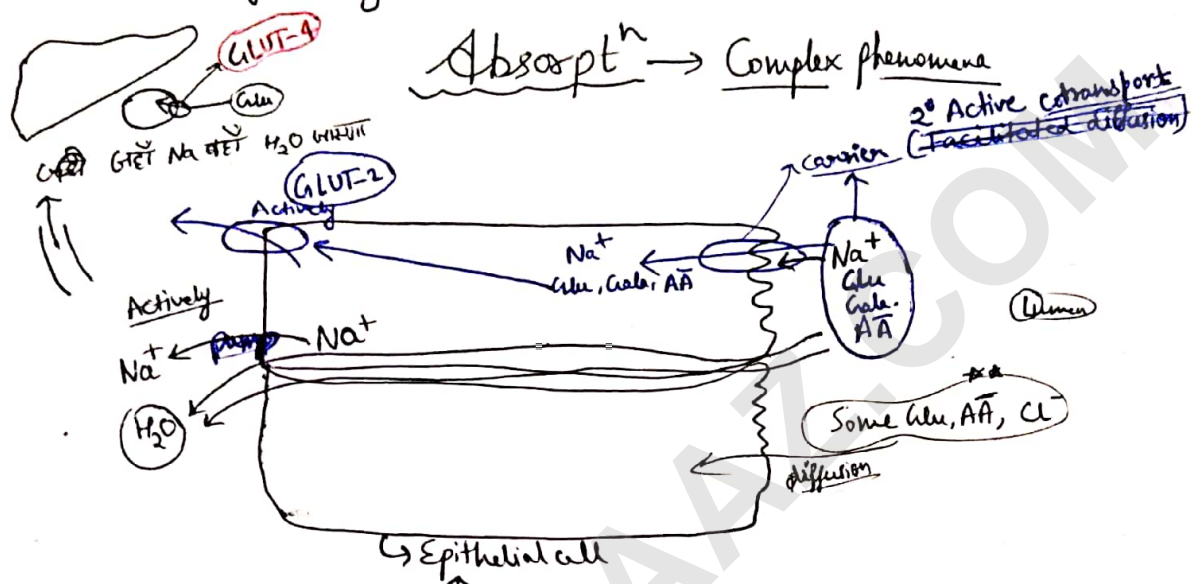 GLUT-4
Glu
Absorptⁿ → Complex phenomena
2° Active cotransport
(Facilitated diffusion)
carrier
जहाँ Na वहाँ H₂O जाएगा
GLUT-2
Actively
Na⁺
Glu, Gala, AĀ
Na⁺
Glu
Gala.
AĀ
Lumen
Actively
Na⁺
pump
Na⁺
H₂O
Some Glu, AĀ, Cl⁻
diffusion
↳ Epithelial cell
AAZ.COM